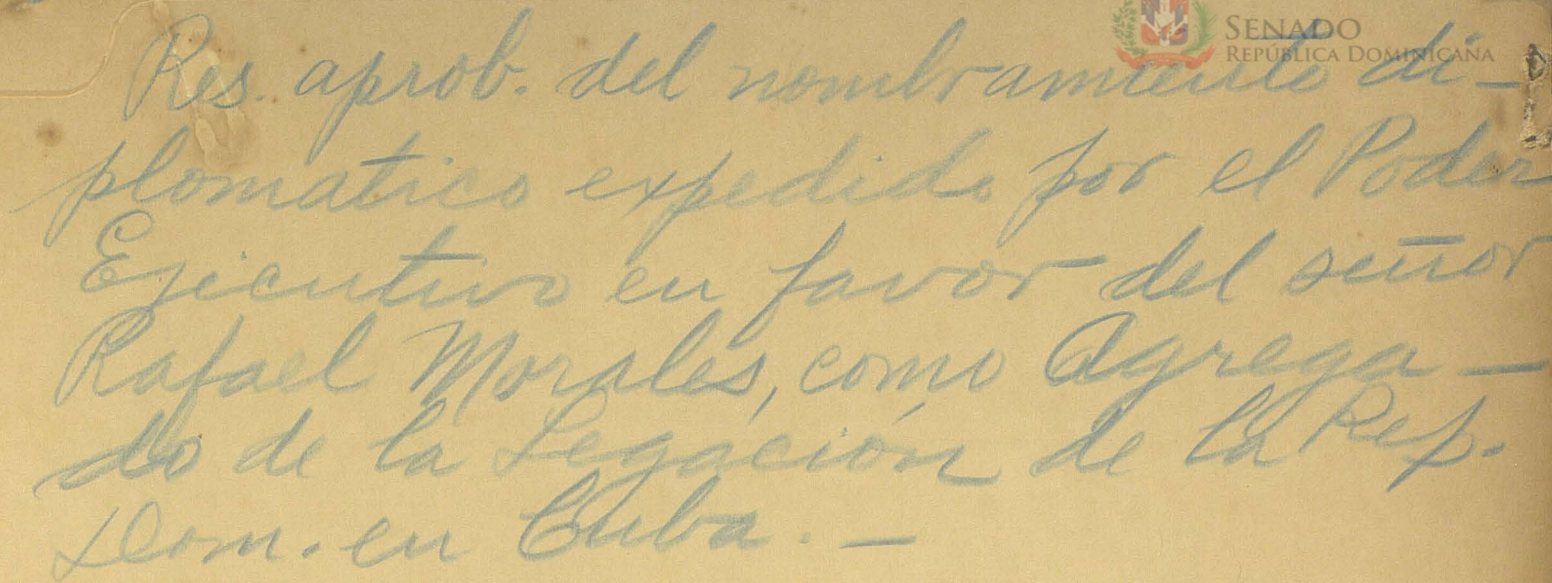 SENADO
REPÚBLICA DOMINICANA
Res. aprob. del nombramiento di-
plomatico expedido por el Poder
Ejecutivo en favor del señor
Rafael Morales, como Agrega-
do de la Legación de la Rep.
Dom. en Cuba. -